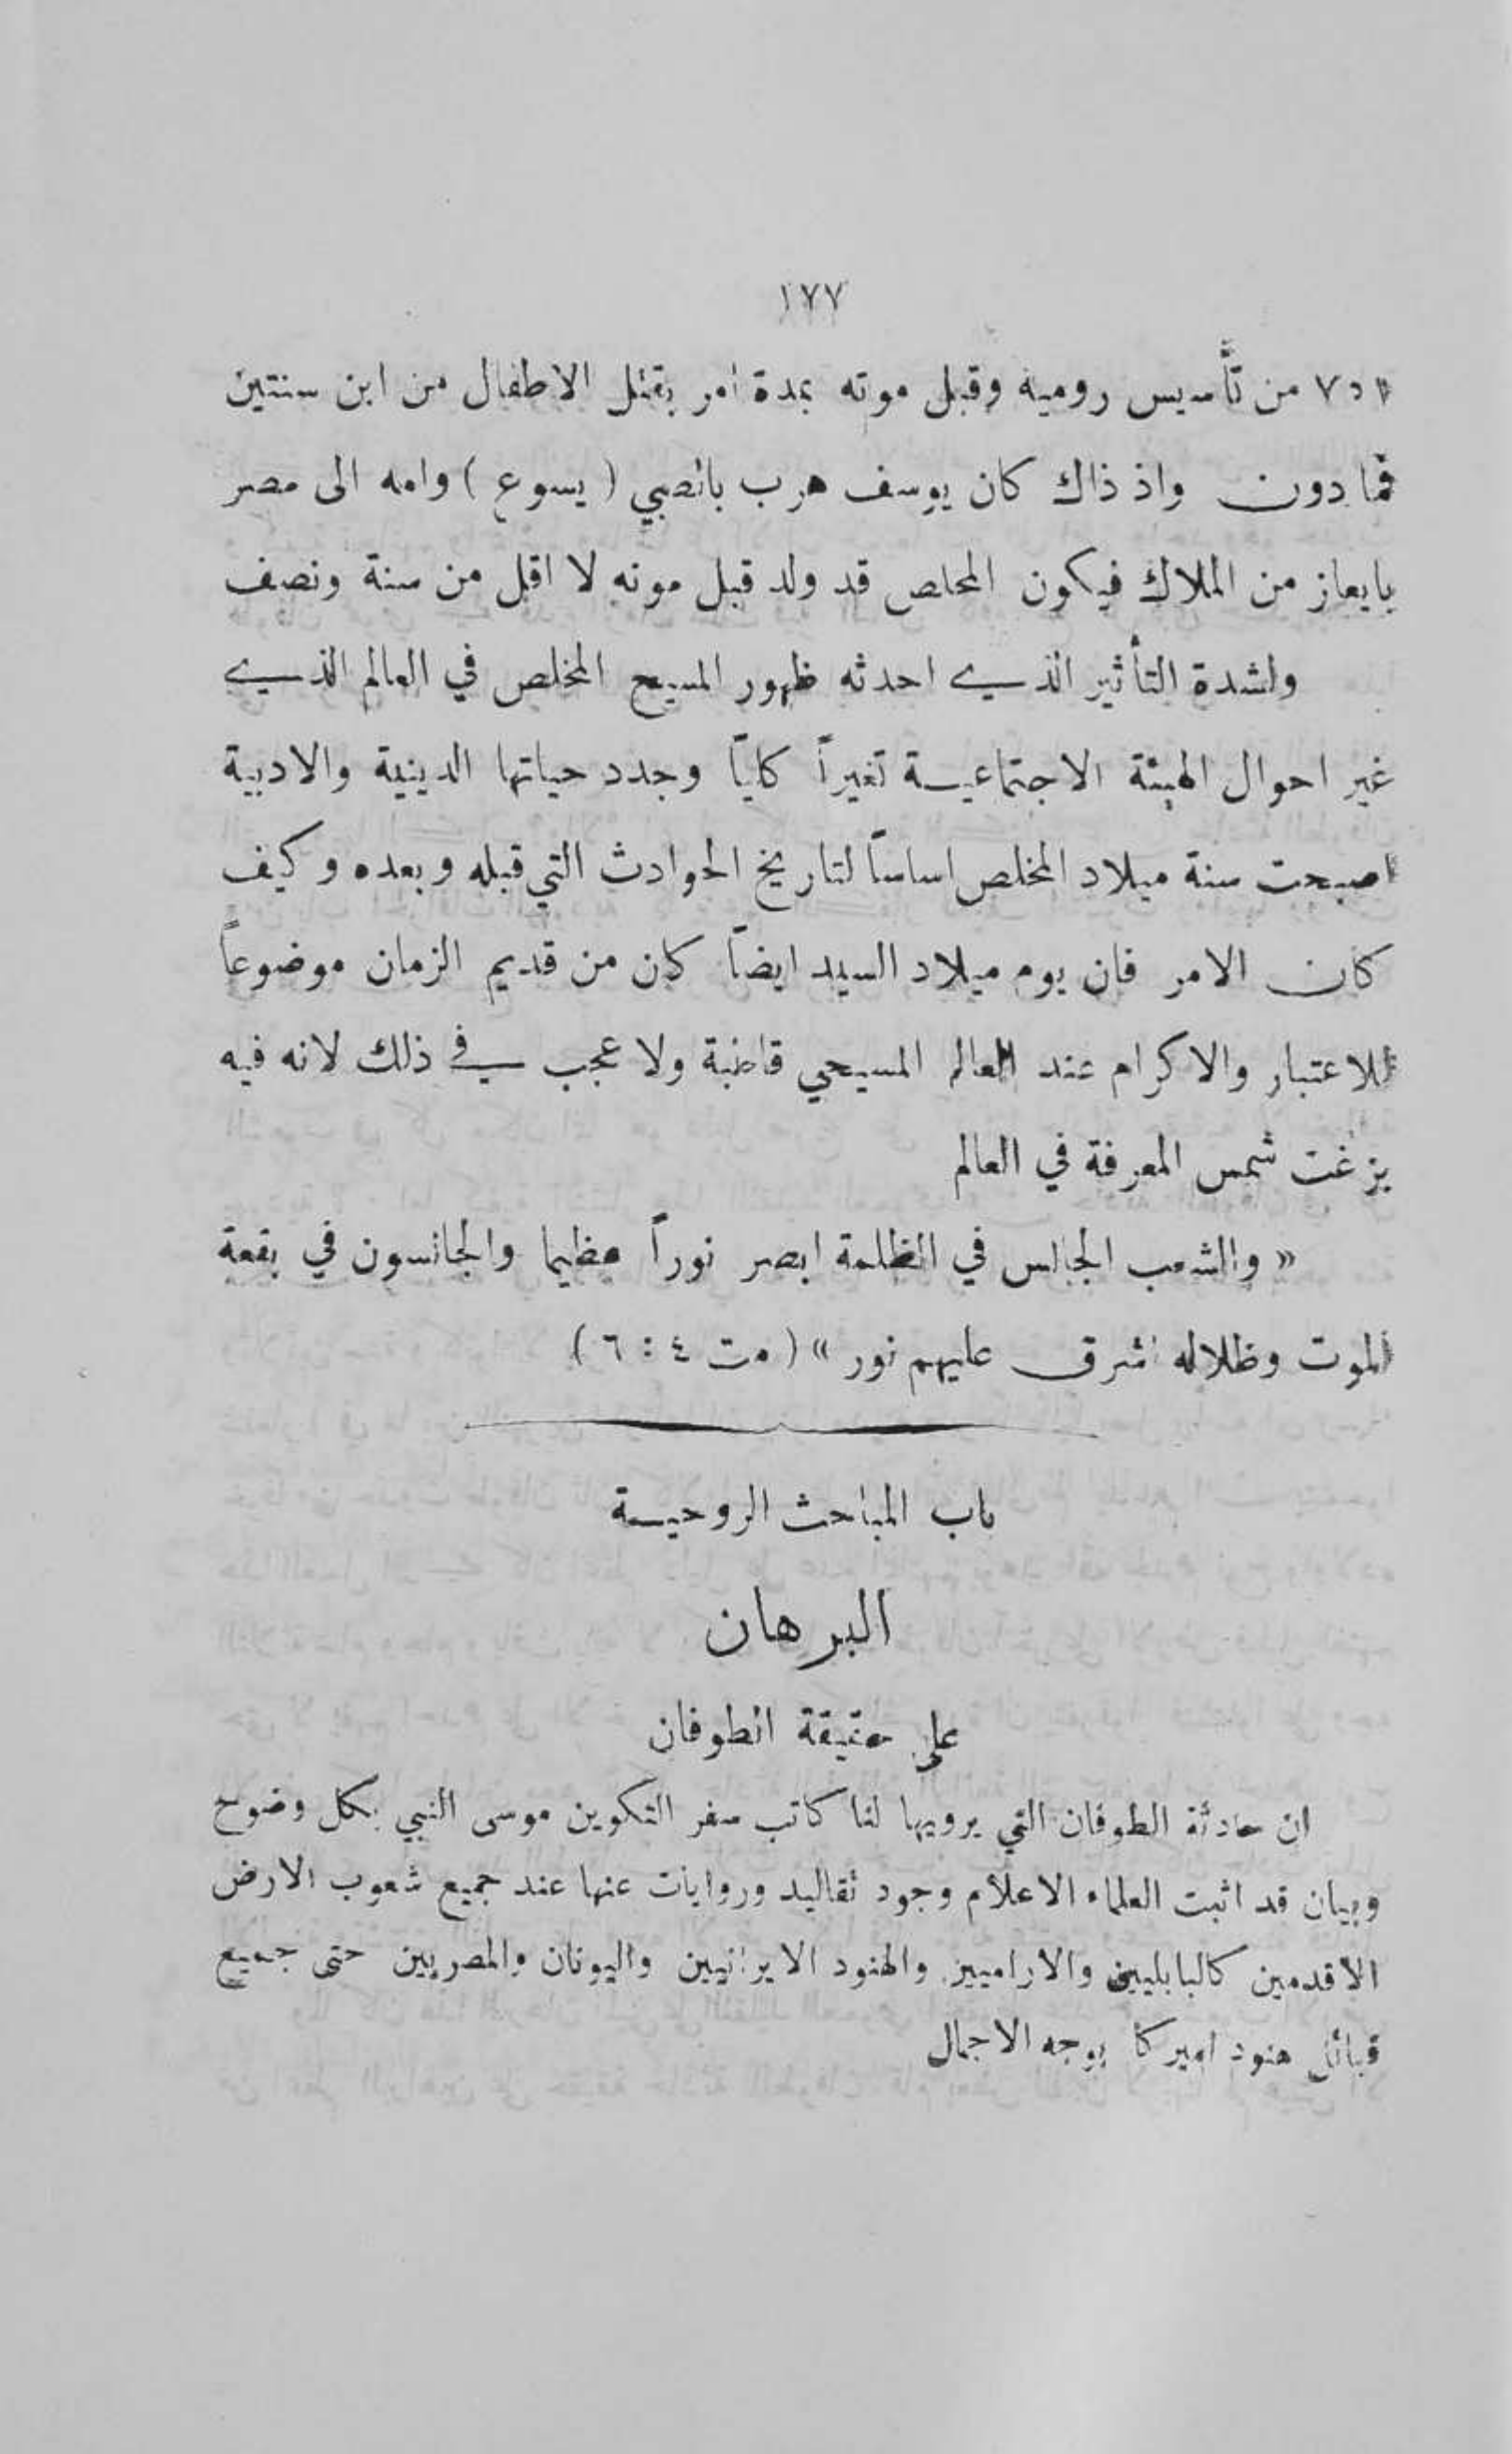 ١٧٧
من تأسيس رومية وقبل موته بمدة امر بقتل الاطفال من ابن سنتين
فما دون واذ ذاك كان يوسف هرب بالصبي ( يسوع ) وامه الى مصر
بايعاز من الملاك فيكون المخلص قد ولد قبل موته لا اقل من سنة ونصف
ولشدة التأثير الذي احدثه ظهور المسيح المخلص في العالم الذي
غير احوال الهيئة الاجتماعية تغيراً كلياً وجدد حياتها الدينية والادبية
اصبحت سنة ميلاد المخلص اساساً لتاريخ الحوادث التي قبله وبعده وكيف
كان الامر فان يوم ميلاد السيد ايضاً كان من قديم الزمان موضوعاً
للاعتبار والاكرام عند العالم المسيحي قاطبة ولا عجب في ذلك لانه فيه
بزغت شمس المعرفة في العالم
« والشعب الجالس في الظلمة ابصر نوراً عظيما والجالسون في بقعة
الموت وظلاله اشرق عليهم نور » ( مت ٤ : ٦ )
باب المباحث الروحية
البرهان
على حقيقة الطوفان
ان حادثة الطوفان التي يرويها لنا كاتب سفر التكوين موسى النبي بكل وضوح
وبيان قد اثبت العلماء الاعلام وجود تقاليد وروايات عنها عند جميع شعوب الارض
الاقدمين كالبابليين والاراميين والهنود الايرانيين واليونان والمصريين حتى جميع
قبائل هنود اميركا بوجه الاجمال